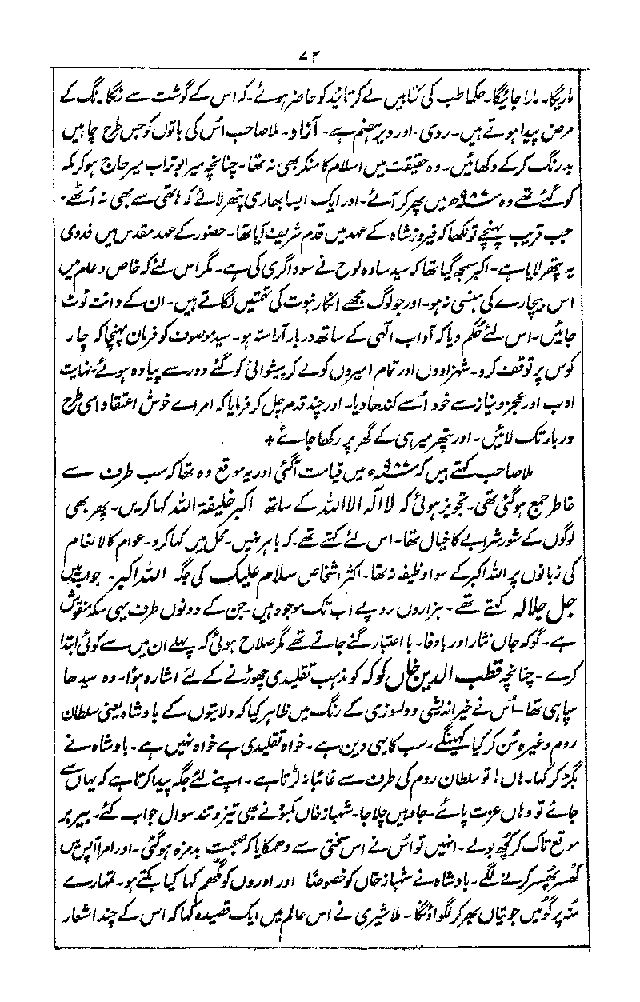 ۷۲
ماریگا۔ مارا جائیگا۔ حکما طب کی کتابیں لے کر تائید کو حاضر ہوئے۔ کہ اس کے گوشت سے رنگا رنگ کے
مرض پیدا ہوتے ہیں۔ ردی۔ اور دیر ہضم ہے۔ آزاد۔ ملا صاحب اس کی باتوں کو جس طرح چاہیں
بد رنگ کر کے دکھائیں۔ وہ حقیقت میں اسلام کا منکر بھی نہ تھا۔ چنانچہ میر ابو تراب میر حاج ہو کر مکہ
کو گئے تھے وہ میں پھر کر آئے۔ اور ایک ایسا بھاری پتھر لائے کہ ہاتھی سے بھی نہ اُٹھے۔
جب قریب پہنچے تو لکھا کہ فیروز شاہ کے عہد میں قدم شریف آیا تھا۔ حضور کے عہد مقدس میں فدوی
یہ پتھر لایا ہے۔ اکبر سمجھ گیا تھا کہ سید سادہ لوح نے سوداگری کی ہے۔ مگر اس لئے کہ خاص و عام میں
اس بیچارے کی ہنسی نہ ہو۔ اور جو لوگ مجھے انکار نبوت کی تہمتیں لگاتے ہیں۔ ان کے دانت ٹوٹ
جائیں۔ اس لئے حکم دیا کہ آداب الٰہی کے ساتھ دربار آراستہ ہو۔ سید موصوف کو فرمان پہنچا کہ چار
کوس پر توقف کرو۔ شہزادوں اور تمام امیروں کو لے کر پیشوائی کو گئے دور سے پیادہ ہوئے۔ نہایت
ادب اور عجز و نیاز سے خود اُسے کندھا دیا۔ اور چند قدم چل کر فرمایا کہ امراے خوش اعتقاد اسی طرح
دربار تک لائیں۔ اور پتھر میر ہی کے گھر پر رکھا جائے +
ملا صاحب کہتے ہیں کہ میں قیامت آگئی اور یہ موقع وہ تھا کہ سب طرف سے
خاطر جمع ہو گئی تھی۔ تجویز ہوئی کہ لا الہ الا اللہ کے ساتھ اکبر خلیفۃ اللہ کہا کریں۔ پھر بھی
لوگوں کے شور شرابے کا خیال تھا۔ اس لئے کہتے تھے کہ باہر نہیں۔ محل میں کہا کرو۔ عوام کالانعام
کی زبانوں پر اللہ اکبر کے سوا وظیفہ نہ تھا۔ اکثر اشخاص سلام علیک کی جگہ اللہ اکبر۔ جواب میں
جل جلالہ کہتے تھے۔ ہزاروں روپے اب تک موجود ہیں۔ جن کے دونوں طرف یہی سکہ منقوش
ہے۔ گو کہ جاں نثار اور باوفا۔ با اعتبار گنے جاتے تھے مگر صلاح ہوئی کہ پہلے ان میں سے کوئی ابتدا
کرے۔ چنانچہ قطب الدین خاں کوکہ کو مذہب تقلیدی چھوڑنے کے لئے اشارہ ہوا۔ وہ سیدھا
سپاہی تھا۔ اُس نے خیر اندیشی و دلسوزی کے رنگ میں ظاہر کیا کہ ولایتوں کے بادشاہ یعنی سلطان
روم وغیرہ سن کر کیا کہینگے۔ سب کا یہی دین ہے۔ خواہ تقلیدی ہے خواہ نہیں ہے۔ بادشاہ نے
بگڑ کر کہا۔ ہاں! تو سلطان روم کی طرف سے غائبانہ لڑتا ہے۔ اپنے لئے جگہ پیدا کرتا ہے کہ یہاں سے
جائے تو وہاں عزت پائے۔ جا وہیں چلا جا۔ شہباز خاں کمبو نے بھی تیز و تند سوال جواب کئے۔ بیربر
موقع تاک کر کچھ بولے۔ انہیں تو اُس نے اس سختی سے دھمکایا کہ صحبت بدمزہ ہو گئی۔ اور امرا آپس میں
کھسر پھسر کرنے لگے۔ بادشاہ نے شہباز خاں کو خصوصاً اور اوروں کو عموماً کہا کیا بکتے ہو۔ تمہارے
منہ پر گو میں جوتیاں بھر کر لگواؤنگا۔ ملا شیری نے اس عالم میں ایک قصیدہ کہا کہ اس کے چند اشعار